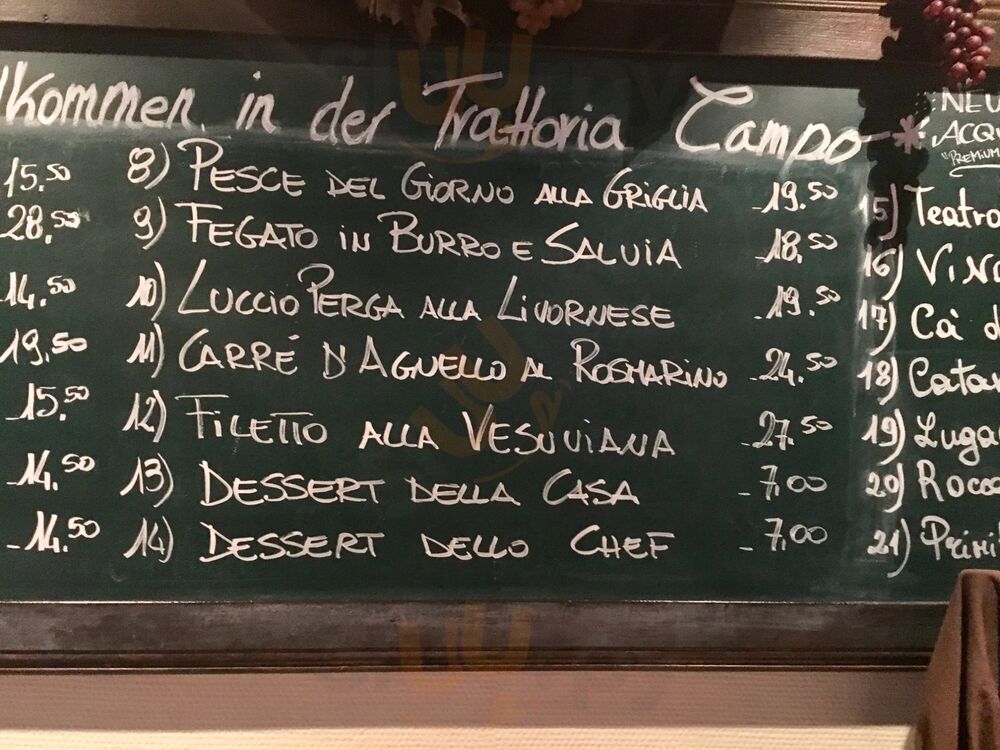 lkommen in der Trattoria Campo *
15.50
28,50
14.50
19,50
15.50
14.50
14.50
8) PESCE DEL GIORNO ALLA GRIGLIA 19.50
9) FEGATO IN BURRO E SALVIA 18.50
10) LUCCIO PERGA ALLA LIVORNESE 19.50
11) CARRÉ D'AGNELLO AL ROSMARINO 24.50
12) FILETTO ALLA VESUVIANA 27.50
13) DESSERT DELLA CASA 7,00
14) DESSERT DELLO CHEF 7,00
NEU
ACQU
"PREMIUM
15) Teatro
16) VINO
17) Cà d
18) Catar
19) Luga
20) Rocca
21) Primi